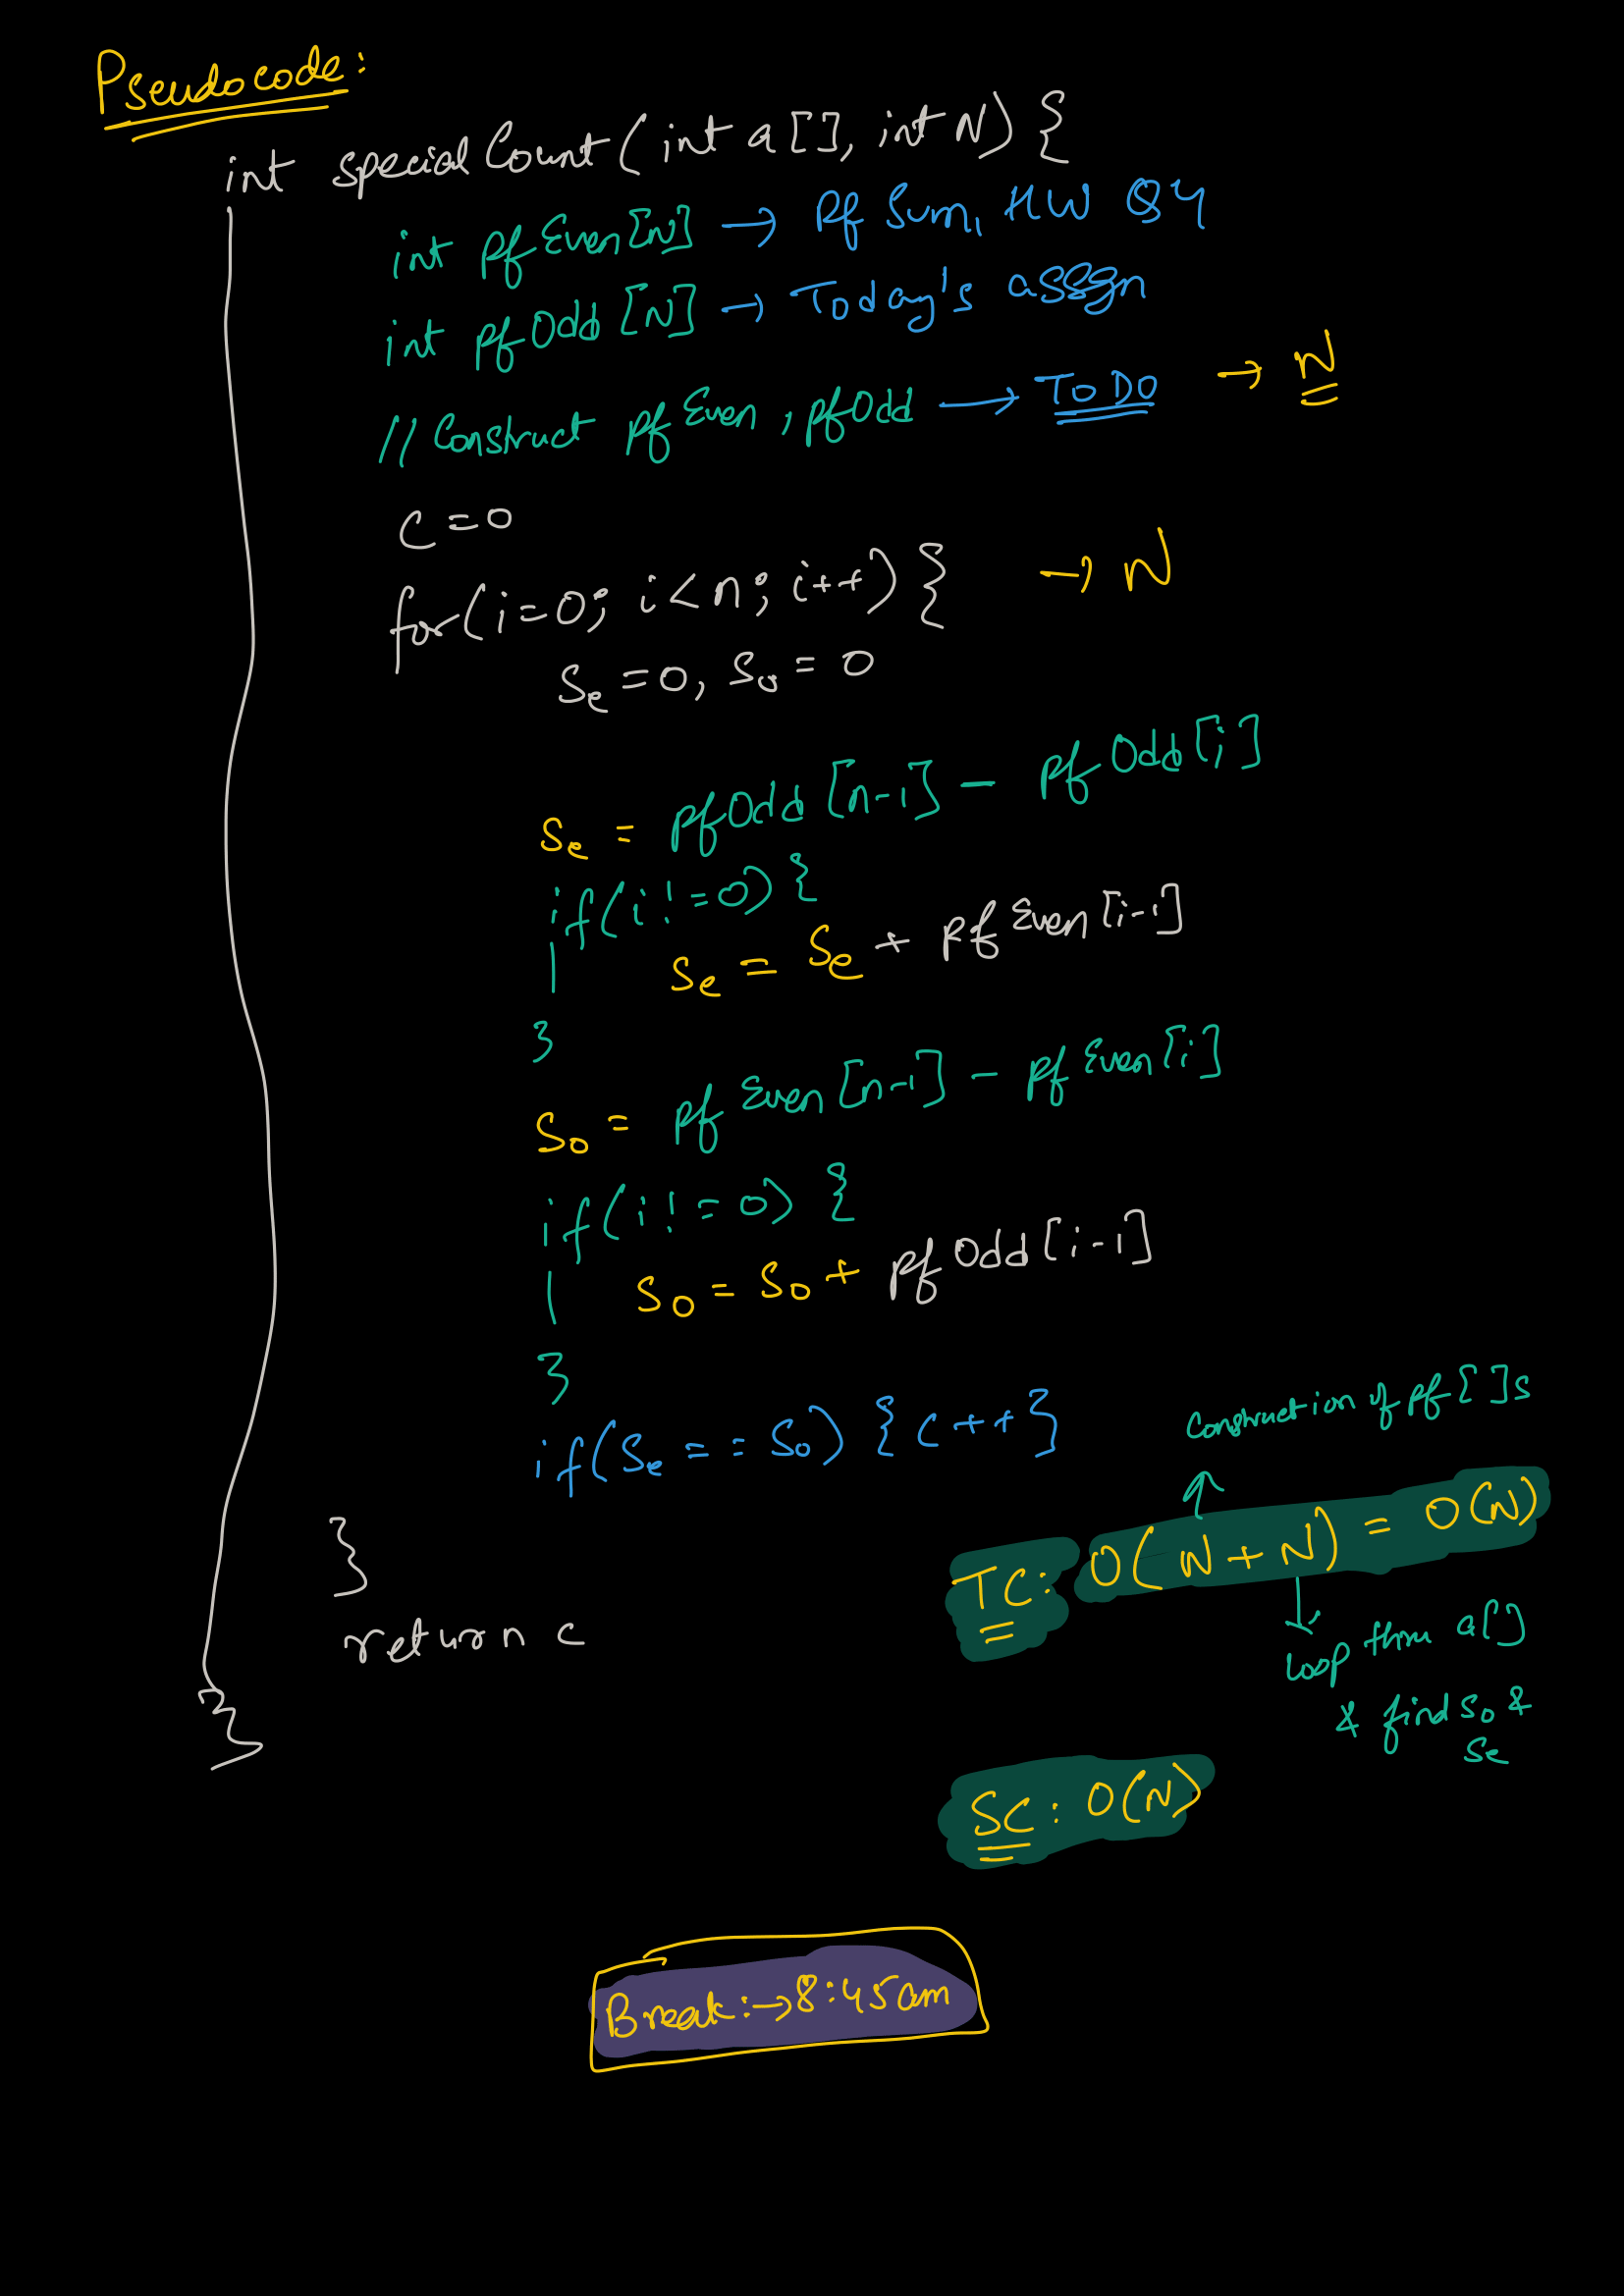 Pseudocode:
int specialCount(int a[], int N) {
int pfEven[N] → Pf Sum, HW Q4
int pfOdd[N] → Today's assgn
// Construct pfEven, pfOdd → TODO → N
C = 0
for(i=0; i<n; i++) { → N
Se = 0, So = 0
Se = pfOdd[n-1] - pfOdd[i]
if(i!=0) {
Se = Se + pfEven[i-1]
}
So = pfEven[n-1] - pfEven[i]
if(i!=0) {
So = So + pfOdd[i-1]
}
if(Se == So) { c++ }
Construction of pf[]s
TC: O(N+N) = O(N)
}
return c
loop thru a[]
& find So &
Se
}
SC: O(N)
Break:→8:45am